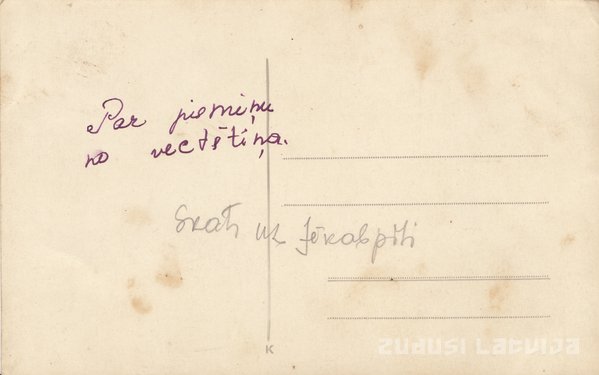 Par piemiņu
no vectētiņa.
Skats uz Jēkabpili
K
ZUDUSI LATVIJA